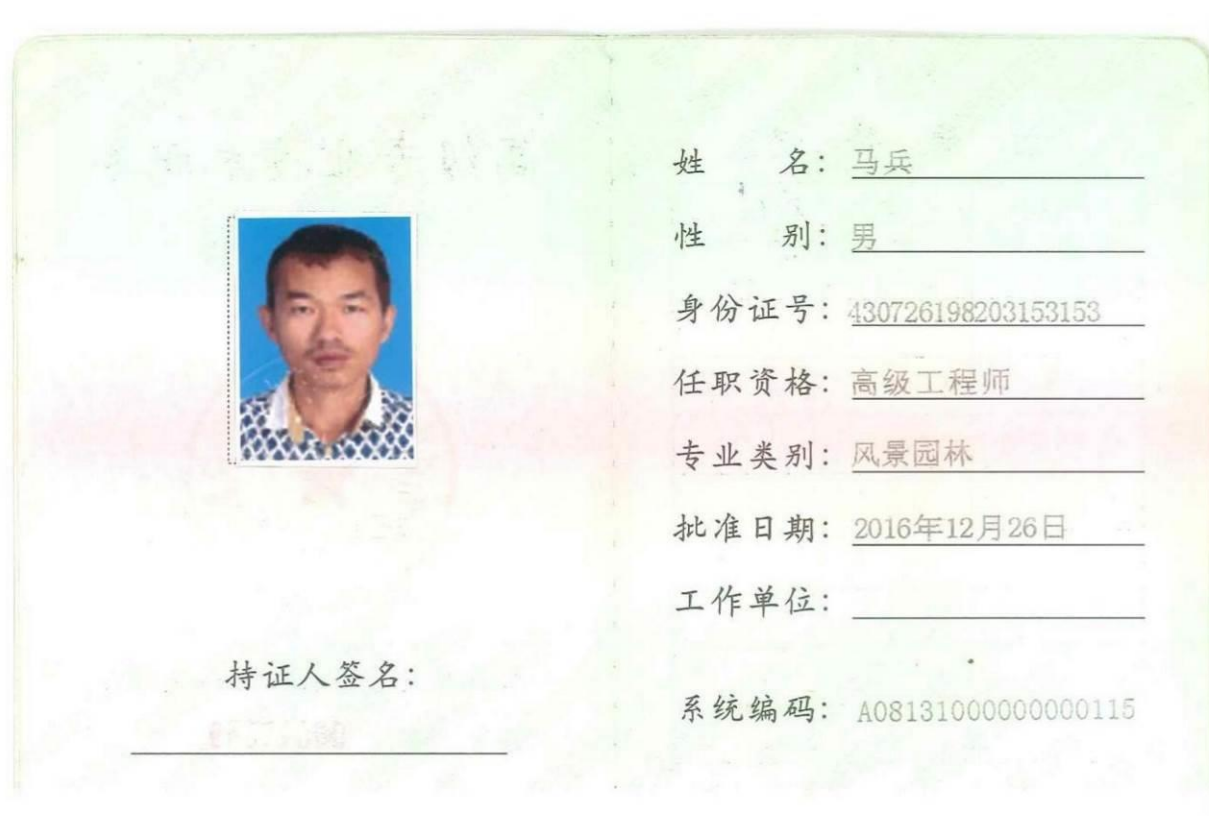 持证人签名：
姓名：马兵
性别：男
身份证号：430726198203153153
任职资格：高级工程师
专业类别：风景园林
批准日期：2016年12月26日
工作单位：
系统编码：A08131000000000115